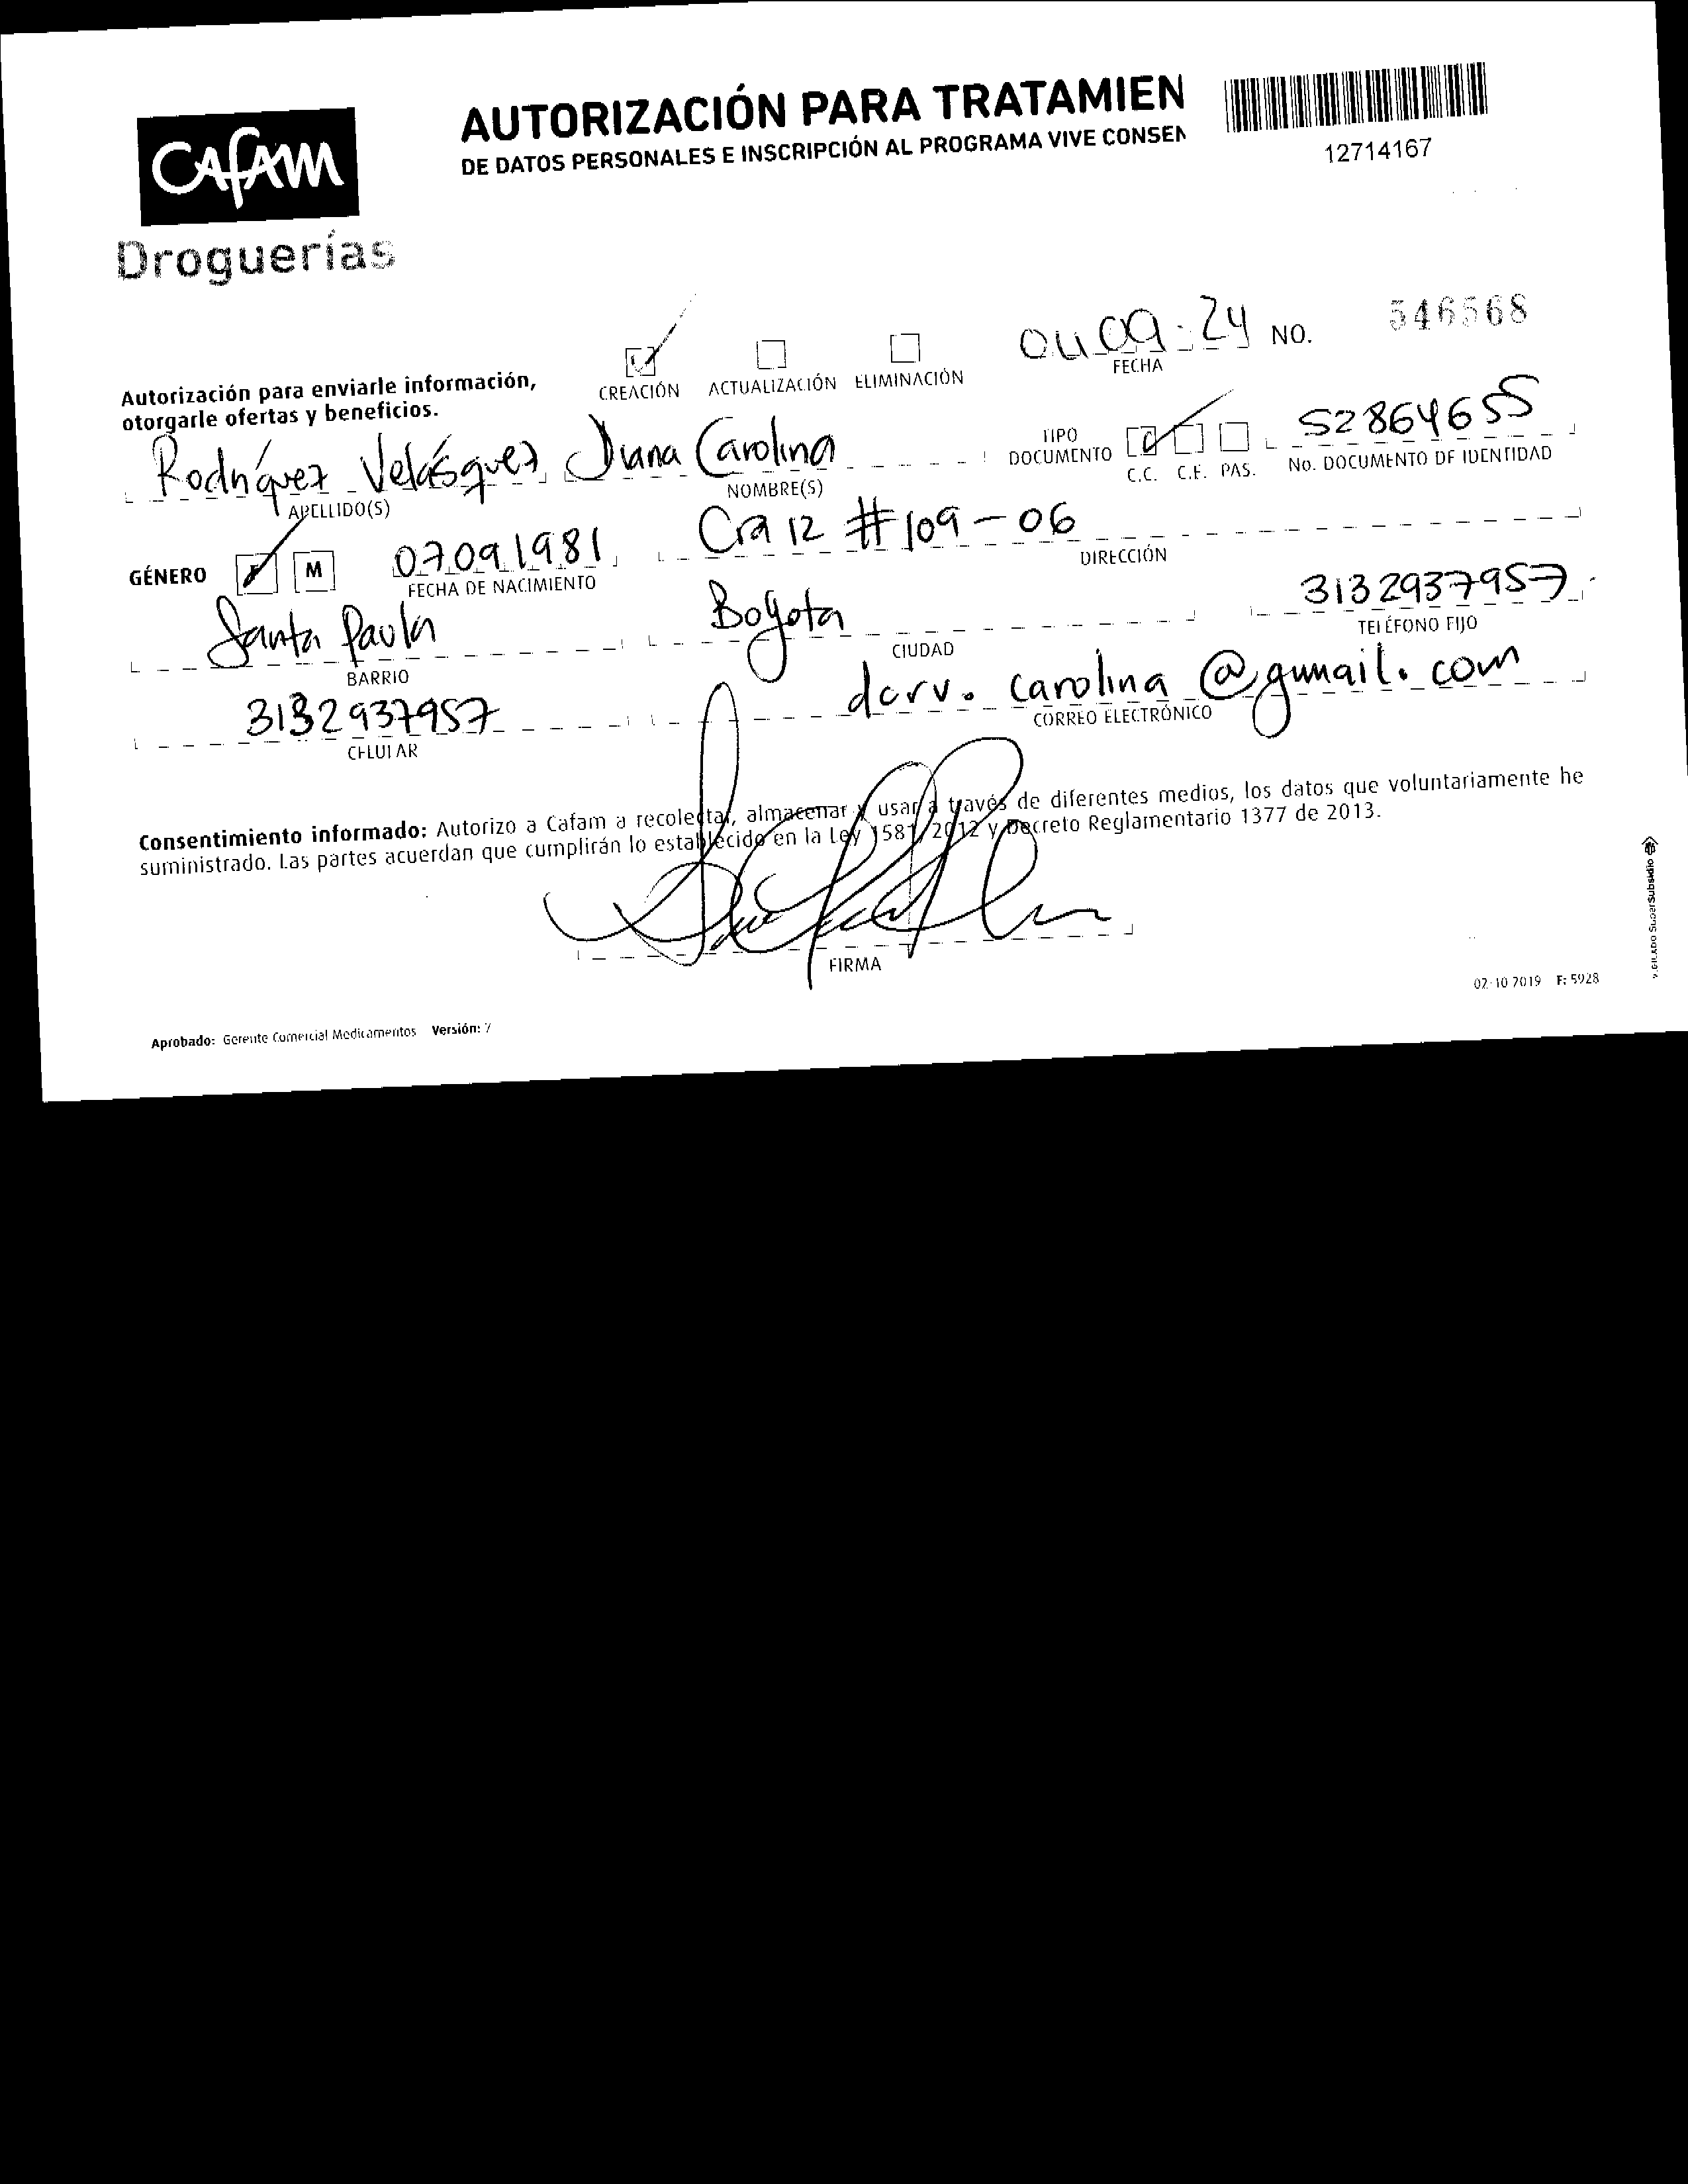 CAFAM
Droguerías
AUTORIZACIÓN PARA TRATAMIEN
DE DATOS PERSONALES E INSCRIPCIÓN AL PROGRAMA VIVE CONSEN
12714167
Autorización para enviarle información,
otorgarle ofertas y beneficios.
CREACIÓN ACTUALIZACIÓN ELIMINACIÓN
04 09 24 NO. 546568
FECHA
Rodríguez Velásquez Diana Carolina
APELLIDO(S) NOMBRE(S)
TIPO DOCUMENTO C.C. C.E. PAS.
52864655
No. DOCUMENTO DE IDENTIDAD
GÉNERO F M
07091981
FECHA DE NACIMIENTO
Cra 12 #109-06
DIRECCIÓN
Santa Paula
BARRIO
Bogota
CIUDAD
3132937957
TELÉFONO FIJO
3132937957
CELULAR
dcrv.carolina@gmail.com
CORREO ELECTRÓNICO
Consentimiento informado: Autorizo a Cafam a recolectar, almacenar y usar a través de diferentes medios, los datos que voluntariamente he
suministrado. Las partes acuerdan que cumplirán lo establecido en la Ley 1581/2012 y Decreto Reglamentario 1377 de 2013.
FIRMA
02-10-2019 F: 5928
Aprobado: Gerente Comercial Medicamentos Versión: 7
VIGILADO SuperSubsidio